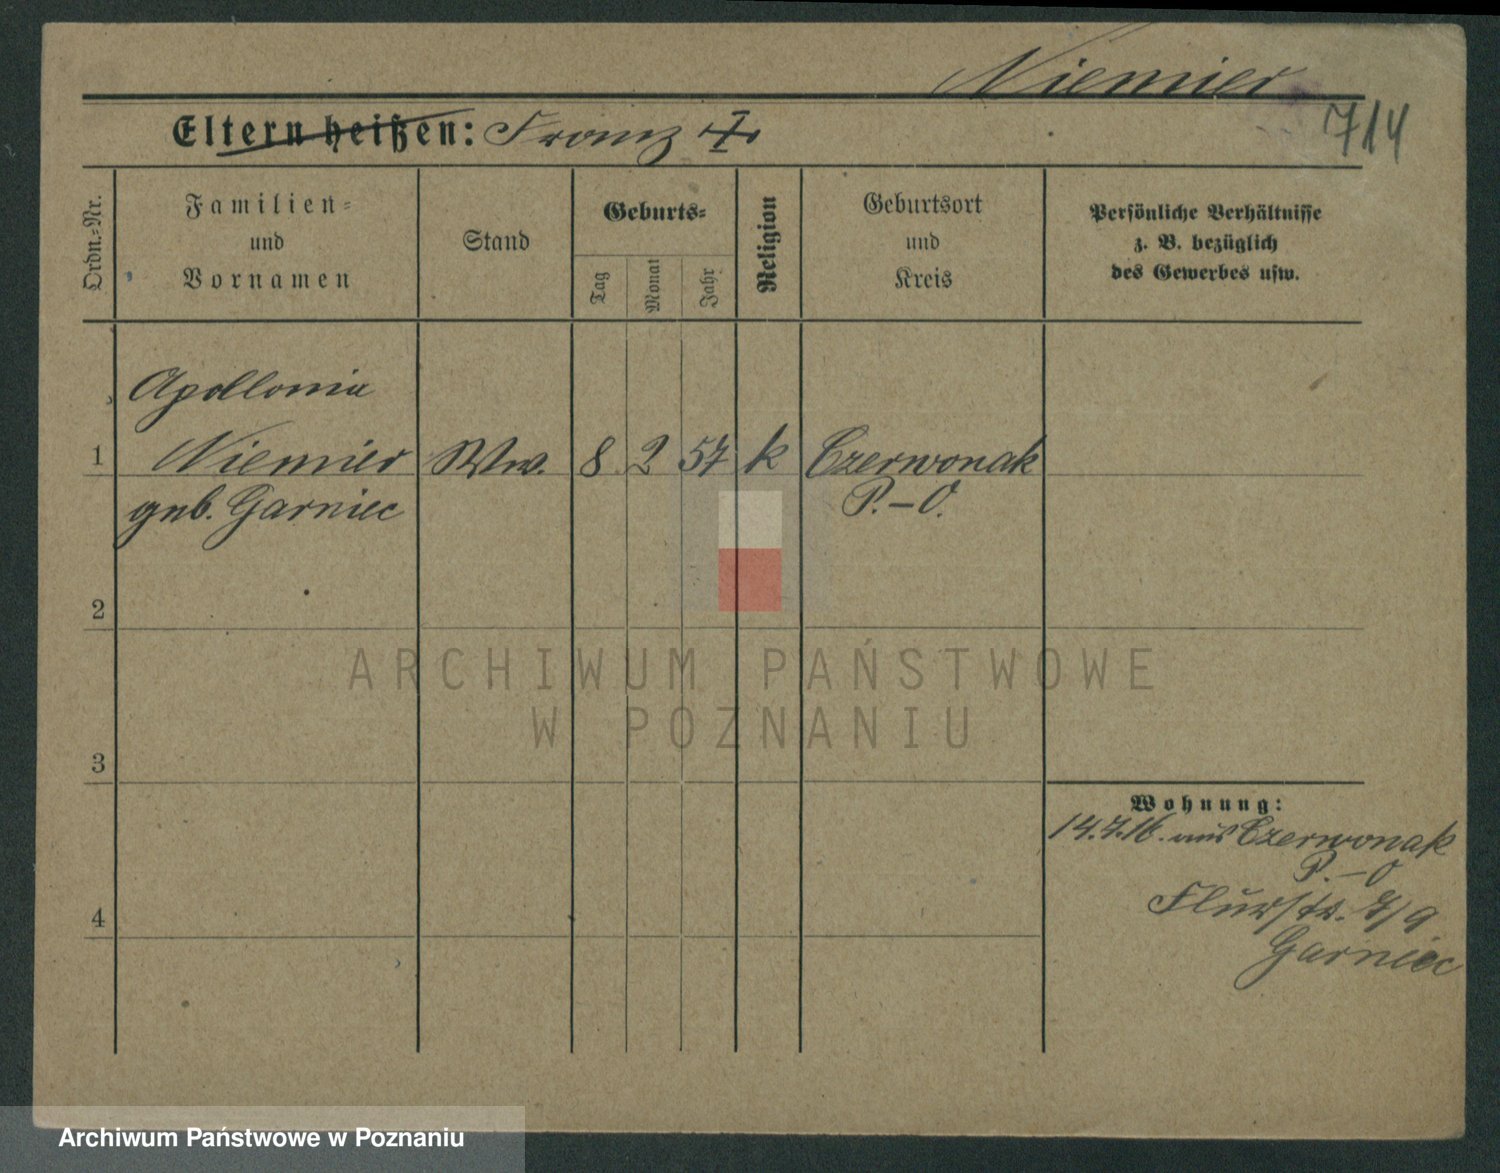 Niemier
714
Eltern heißen: Franz
Ordn.-Nr.
Familien-
und
Vornamen
Stand
Geburts-
Tag
Monat
Jahr
Religion
Geburtsort
und
Kreis
Persönliche Verhältnisse
z. B. bezüglich
des Gewerbes usw.
Apollonia
1 Niemier Ww. 8 2 57 k Czerwonak
geb. Garniec P.-O.
2
3
4
Wohnung:
14.7.16. aus Czerwonak
P.-O
Flurstr. 7/9
Garniec
ARCHIWUM PAŃSTWOWE
W POZNANIU
Archiwum Państwowe w Poznaniu